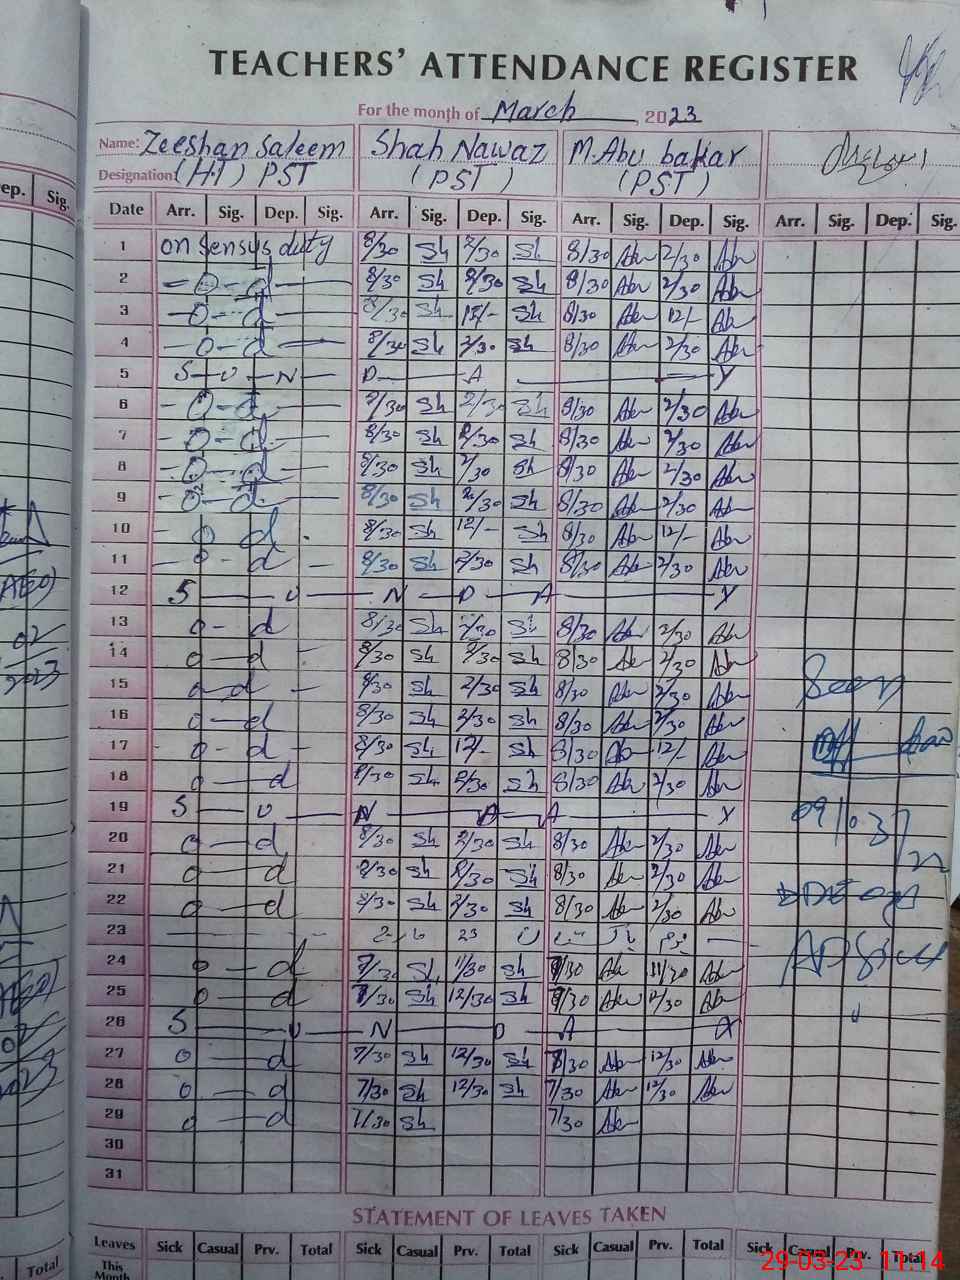 TEACHERS' ATTENDANCE REGISTER
For the month of March, 2023
Name: Zeeshan Saleem Shah Nawaz M.Abu bakar
Designation: (H.T) PST (PST) (PST)
Date Arr. Sig. Dep. Sig. Arr. Sig. Dep. Sig. Arr. Sig. Dep. Sig. Arr. Sig. Dep. Sig.
1 on Sensus duty 8/30 Sh 2/30 Sh 8/30 Abu 2/30 Abu
2 - O - d - 8/30 Sh 2/30 Sh 8/30 Abu 2/30 Abu
3 - O - d - 8/30 Sh 12/- Sh 8/30 Abu 12/- Abu
4 - O - d - 8/30 Sh 2/30 Sh 8/30 Abu 2/30 Abu
5 S - U - N - D - A - Y
6 - O - d - 8/30 Sh 2/30 Sh 8/30 Abu 2/30 Abu
7 - O - d - 8/30 Sh 2/30 Sh 8/30 Abu 2/30 Abu
8 - O - d - 8/30 Sh 2/30 Sh 8/30 Abu 2/30 Abu
9 - O - d - 8/30 Sh 2/30 Sh 8/30 Abu 2/30 Abu
10 - O d 8/30 Sh 12/- Sh 8/30 Abu 12/- Abu
11 - O - d - 8/30 Sh 2/30 Sh 8/30 Abu 2/30 Abu
12 S - U - N - D - A - Y
13 O - d 8/30 Sh 2/30 Sh 8/30 Abu 2/30 Abu
14 O - d - 8/30 Sh 2/30 Sh 8/30 Abu 2/30 Abu
15 O - d - 8/30 Sh 2/30 Sh 8/30 Abu 2/30 Abu
16 O - d 8/30 Sh 2/30 Sh 8/30 Abu 2/30 Abu
17 O - d - 8/30 Sh 12/- Sh 8/30 Abu 12/- Abu
18 O - d 8/30 Sh 2/30 Sh 8/30 Abu 2/30 Abu
19 S - U - N - A - A - Y
20 O - d 8/30 Sh 2/30 Sh 8/30 Abu 2/30 Abu
21 O d 8/30 Sh 2/30 Sh 8/30 Abu 2/30 Abu
22 O - d 8/30 Sh 2/30 Sh 8/30 Abu 2/30 Abu
23 23
24 O - d 7/30 Sh 11/30 Sh 7/30 Abu 11/30 Abu
25 O - d 7/30 Sh 12/30 Sh 7/30 Abu 12/30 Abu
26 S - U - N - D - A - Y
27 O - d 7/30 Sh 12/30 Sh 7/30 Abu 12/30 Abu
28 O - d 7/30 Sh 12/30 Sh 7/30 Abu 12/30 Abu
29 O - d 7/30 Sh 7/30 Abu
30
31
Seen
STATEMENT OF LEAVES TAKEN
Leaves Sick Casual Prv. Total Sick Casual Prv. Total Sick Casual Prv. Total Sick Casual Prv. Total
This
Month
ep. Sig.
(AEO)
02
2023
Total
29-03-23 11:14